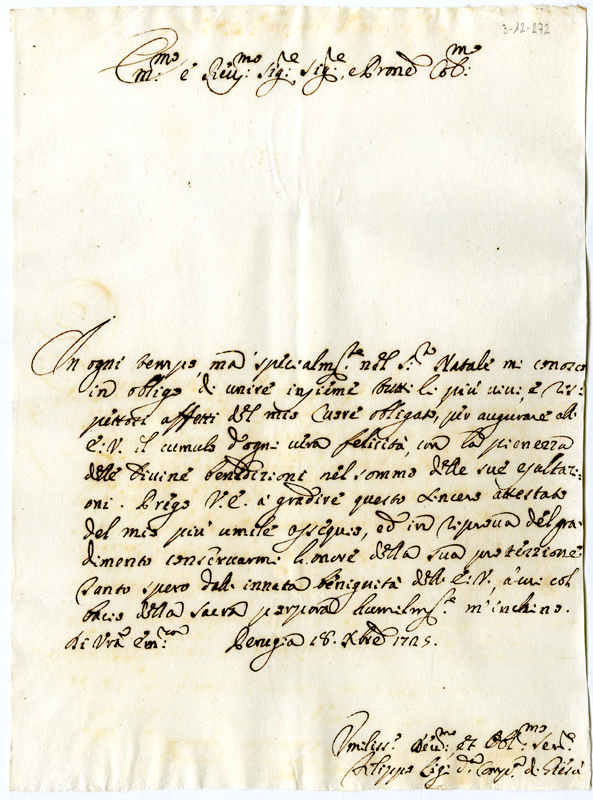 3-12-272
Em:mo e Reu:mo Sig:re Sig:re, e Prone Col:mo
In ogni tempo, mà specialm:te nel S:to Natale mi conosco
in obligo di unire insieme tutti li più viui, e ris:
pettosi affetti del mio cuore obligato, per augurare all'
E:V. il cumulo d'ogni vera felicità, con la pienezza
delle Diuine benedizioni nel sommo delle sue esaltazi:
oni. Prego V.E. a gradire questo sincero attestato
del mio più umile ossequio, ed in riproua del gra:
dimento conseruarmi l'onore della sua protezzione.
Tanto spero dall' innata benignità dell' E:V, à cui col
bacio della sacra porpora humilm:te m'inchino.
di Vra Em:za Perugia 18. Xbre 1725.
Vmiliss:o Deu:mo, et Obl:mo Ser:e
Filippo della Comp:a di Giesù